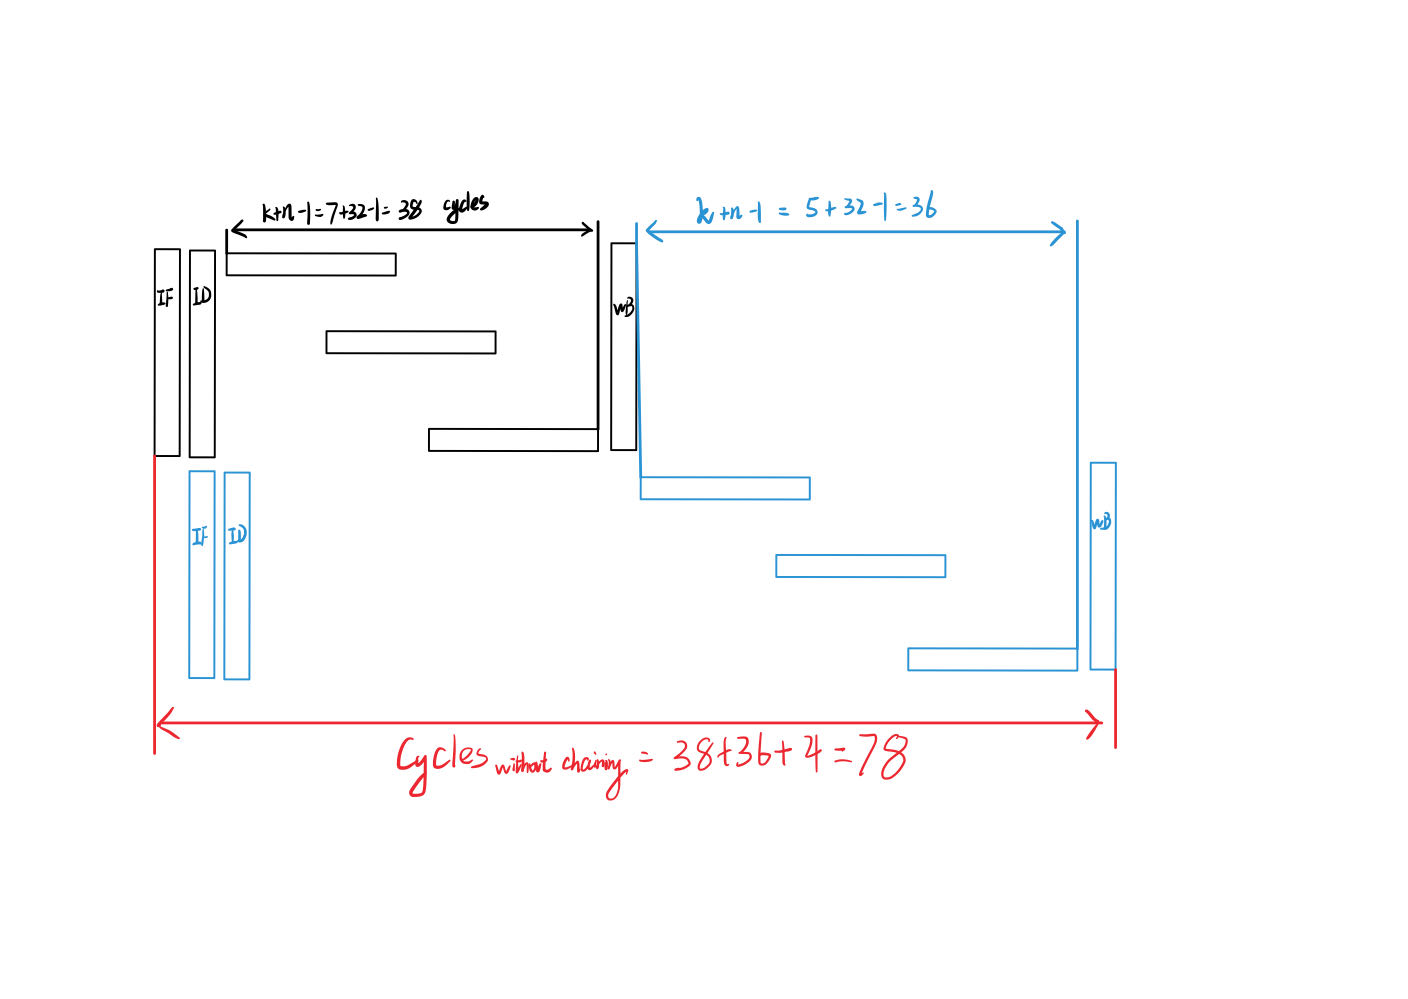 k+n-1=7+32-1=38 cycles
k+n-1 = 5+32-1=36
IF
ID
WB
IF
ID
WB
Cycles without chaining = 38+36+4=78